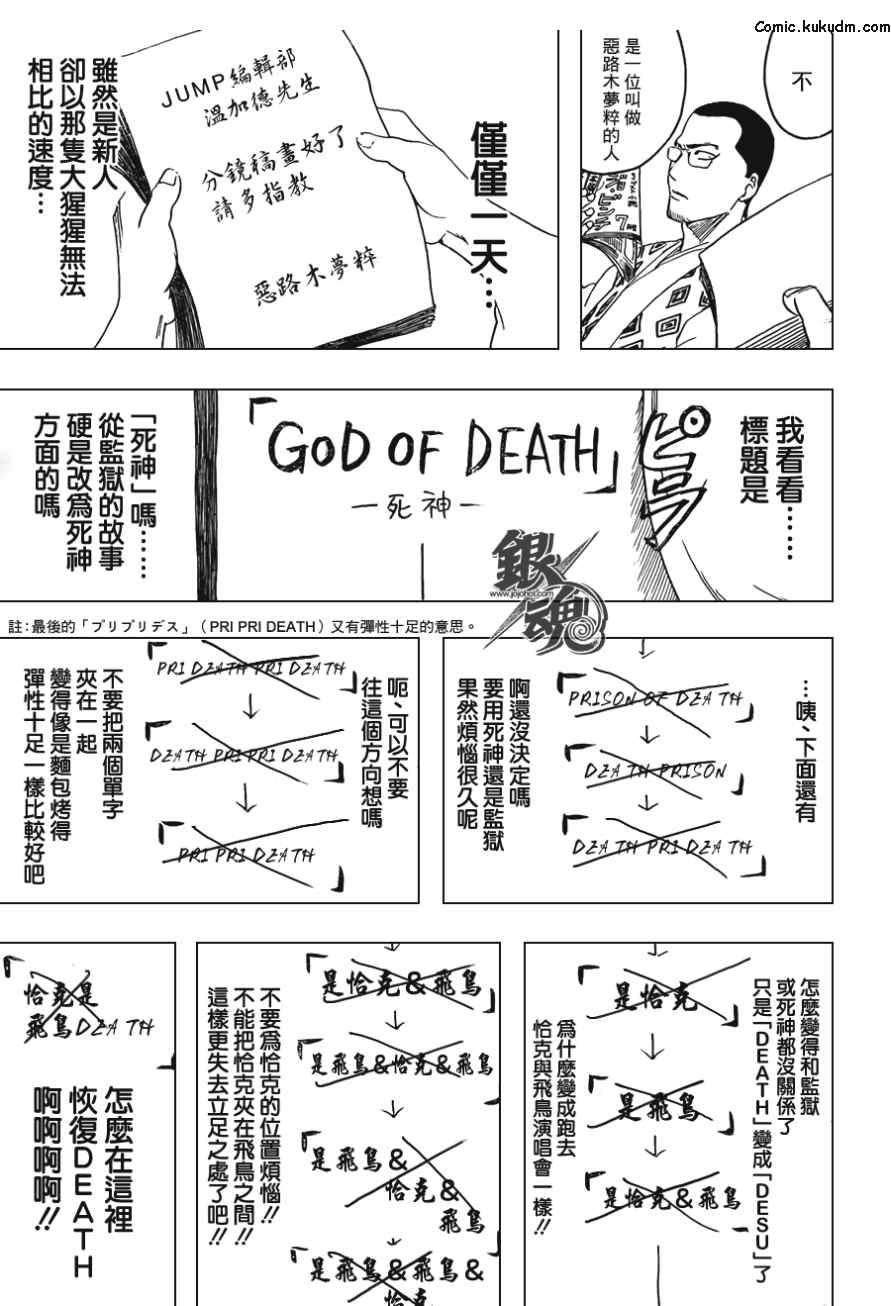 Comic.kukudm.com
不
是一位叫做
惡路木夢粹的人
僅僅一天…
JUMP編輯部
溫加德先生
分鏡稿畫好了
請多指教
惡路木夢粹
雖然是新人
卻以那隻大猩猩無法
相比的速度…
我看看……
標題是
ピラ
「GOD OF DEATH」
—死神—
「死神」嗎……
從監獄的故事
硬是改為死神
方面的嗎
銀魂
www.jojohot.com
註:最後的「プリプリデス」（PRI PRI DEATH）又有彈性十足的意思。
…咦、下面還有
↓
「PRISON OF DEATH」
↓
「DEATH PRISON」
↓
「DEATH PRI DEATH」
啊還沒決定嗎
要用死神還是監獄
果然煩惱很久呢
呃、可以不要
往這個方向想嗎
「PRI DEATH PRI DEATH」
↓
「DEATH PRI PRI DEATH」
↓
「PRI PRI DEATH」
不要把兩個單字
夾在一起
變得像是麵包烤得
彈性十足一樣比較好吧
怎麼變得和監獄
或死神都沒關係了
只是「DEATH」變成「DESU」了
↓
「是恰克」
↓
「是飛鳥」
↓
「是恰克&飛鳥」
為什麼變成跑去
恰克與飛鳥演唱會一樣!!
↓
「是恰克&飛鳥」
↓
「是飛鳥&恰克&飛鳥」
↓
「是飛鳥&
恰克&
飛鳥」
↓
「是飛鳥&飛鳥&
恰克
不要為恰克的位置煩惱!!
不能把恰克夾在飛鳥之間!!
這樣更失去立足之處了吧!!
「恰克是
飛鳥DEATH」
怎麼在這裡
恢復DEATH
啊啊啊啊!!